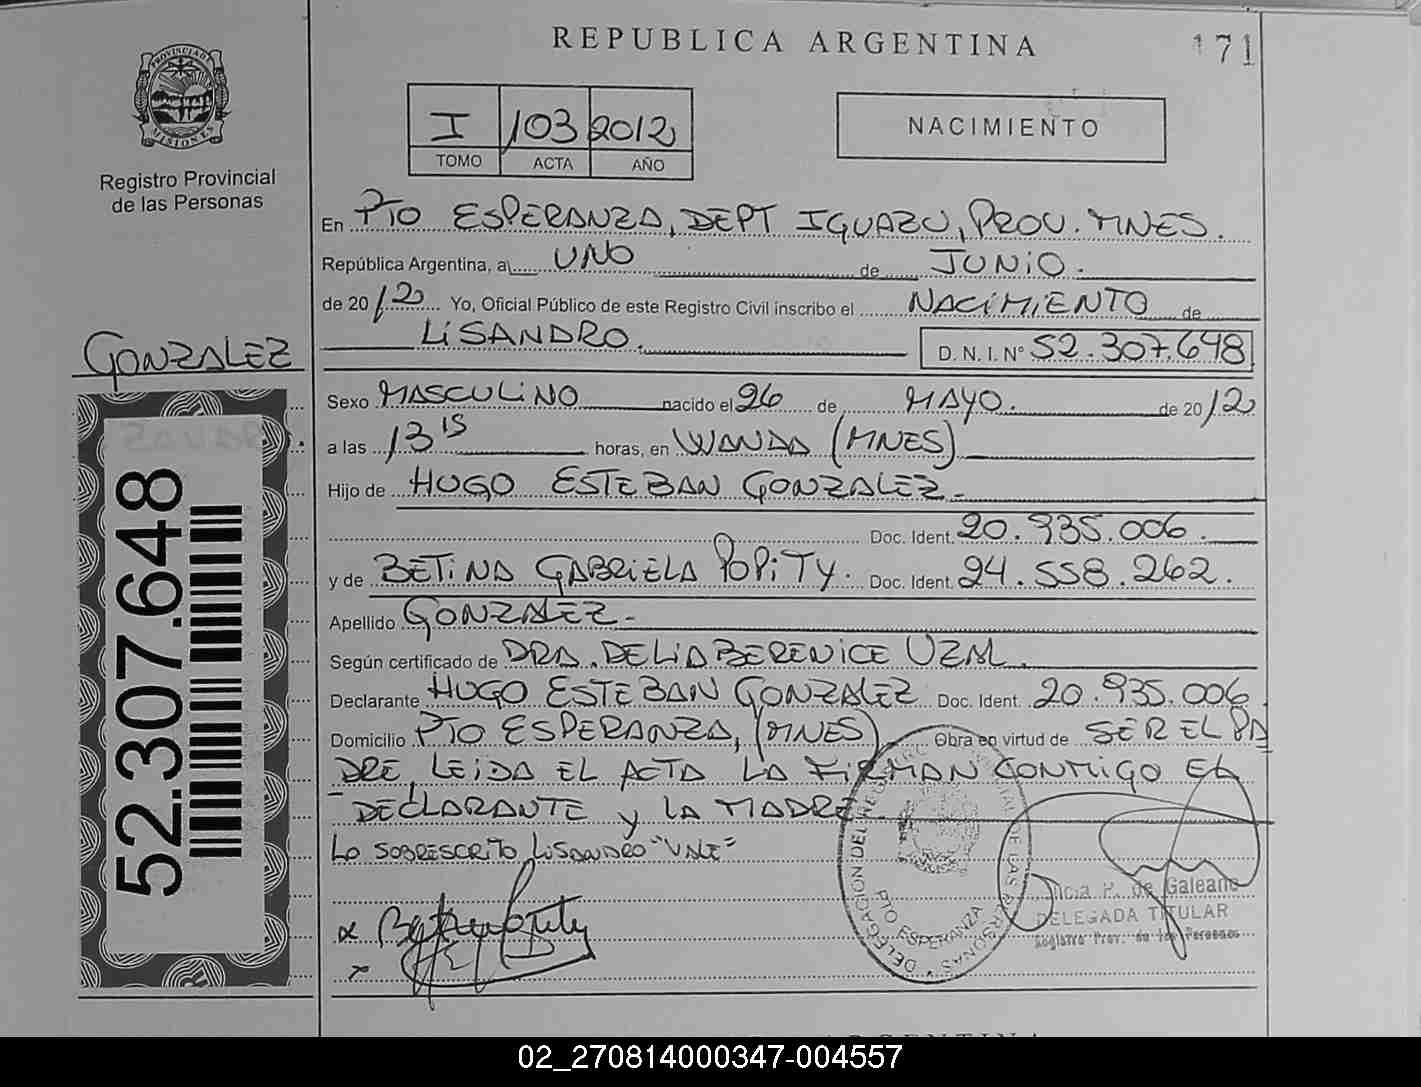 REPUBLICA ARGENTINA
171
PROVINCIA DE
MISIONES
Registro Provincial
de las Personas
I 103 2012
TOMO ACTA AÑO
NACIMIENTO
En PTO ESPERANZA, DEPT IGUAZU, PROV. MNES.
República Argentina, a UNO de JUNIO.
de 2012 Yo, Oficial Público de este Registro Civil inscribo el NACIMIENTO de
LISANDRO.
D. N. I. Nº 52.307.648
GONZALEZ
Sexo MASCULINO nacido el 26 de MAYO. de 2012
a las 13 15 horas, en WANDA (MNES)
Hijo de HUGO ESTEBAN GONZALEZ-
Doc. Ident. 20.935.006.
y de BETINA GABRIELA POPITY. Doc. Ident. 24.558.262.
Apellido GONZALEZ-
Según certificado de DRA. DELIA BERENICE UZAL.
Declarante HUGO ESTEBAN GONZALEZ Doc. Ident. 20.935.006
Domicilio PTO ESPERANZA, (MNES) Obra en virtud de SER EL PA
DRE, LEIDA EL ACTA LA FIRMAN CONMIGO EL
DECLARANTE y LA MADRE.
Lo SOBRESCRITO LISANDRO "VALE"
52.307.648
DELEGACION DEL REG. PROVINCIAL DE LAS PERSONAS
PTO ESPERANZA
Alicia R. de Galeano
DELEGADA TITULAR
Registro Prov. de las Personas
ARGENTINA
02_270814000347-004557